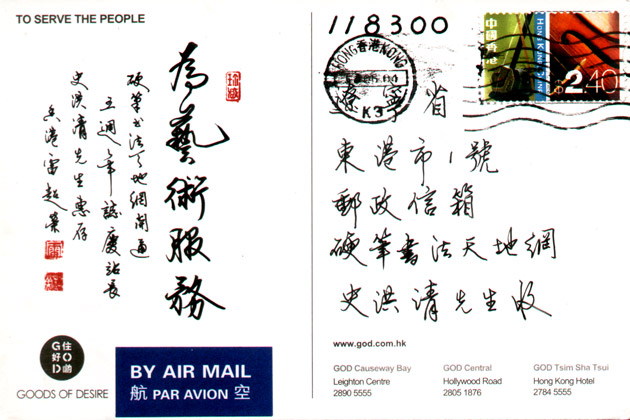 TO SERVE THE PEOPLE
為藝術服務
硬筆书法天地網開通
五週年誌慶站長
史洪清先生惠存
香港雷超榮
G住
好O
D啲
GOODS OF DESIRE
BY AIR MAIL
航 PAR AVION 空
118300
HONG KONG 香港
K3
中國香港
HONG KONG, CHINA
$2.40
遼寧省
東港市1號
郵政信箱
硬筆書法天地網
史洪清先生收
www.god.com.hk
GOD Causeway Bay
Leighton Centre
2890 5555
GOD Central
Hollywood Road
2805 1876
GOD Tsim Sha Tsui
Hong Kong Hotel
2784 5555